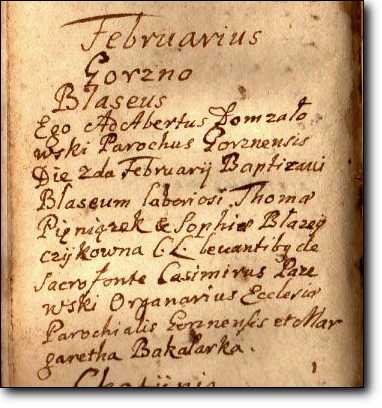 Februarius
Gorzno
Blaseus
Ego AdAbertus Domzało
wski Parochus Gorznensis
Die 2da Februarij Baptizavi
Blaseum laboriosi Thomæ
Pięniązek & Sophiæ Błazeg
czykowna CL levantibq de
Sacro fonte Casimirus Paze
wski Organarius Ecclesiæ
Parochialis Gornensis et Mar
garetha Bakalarka.